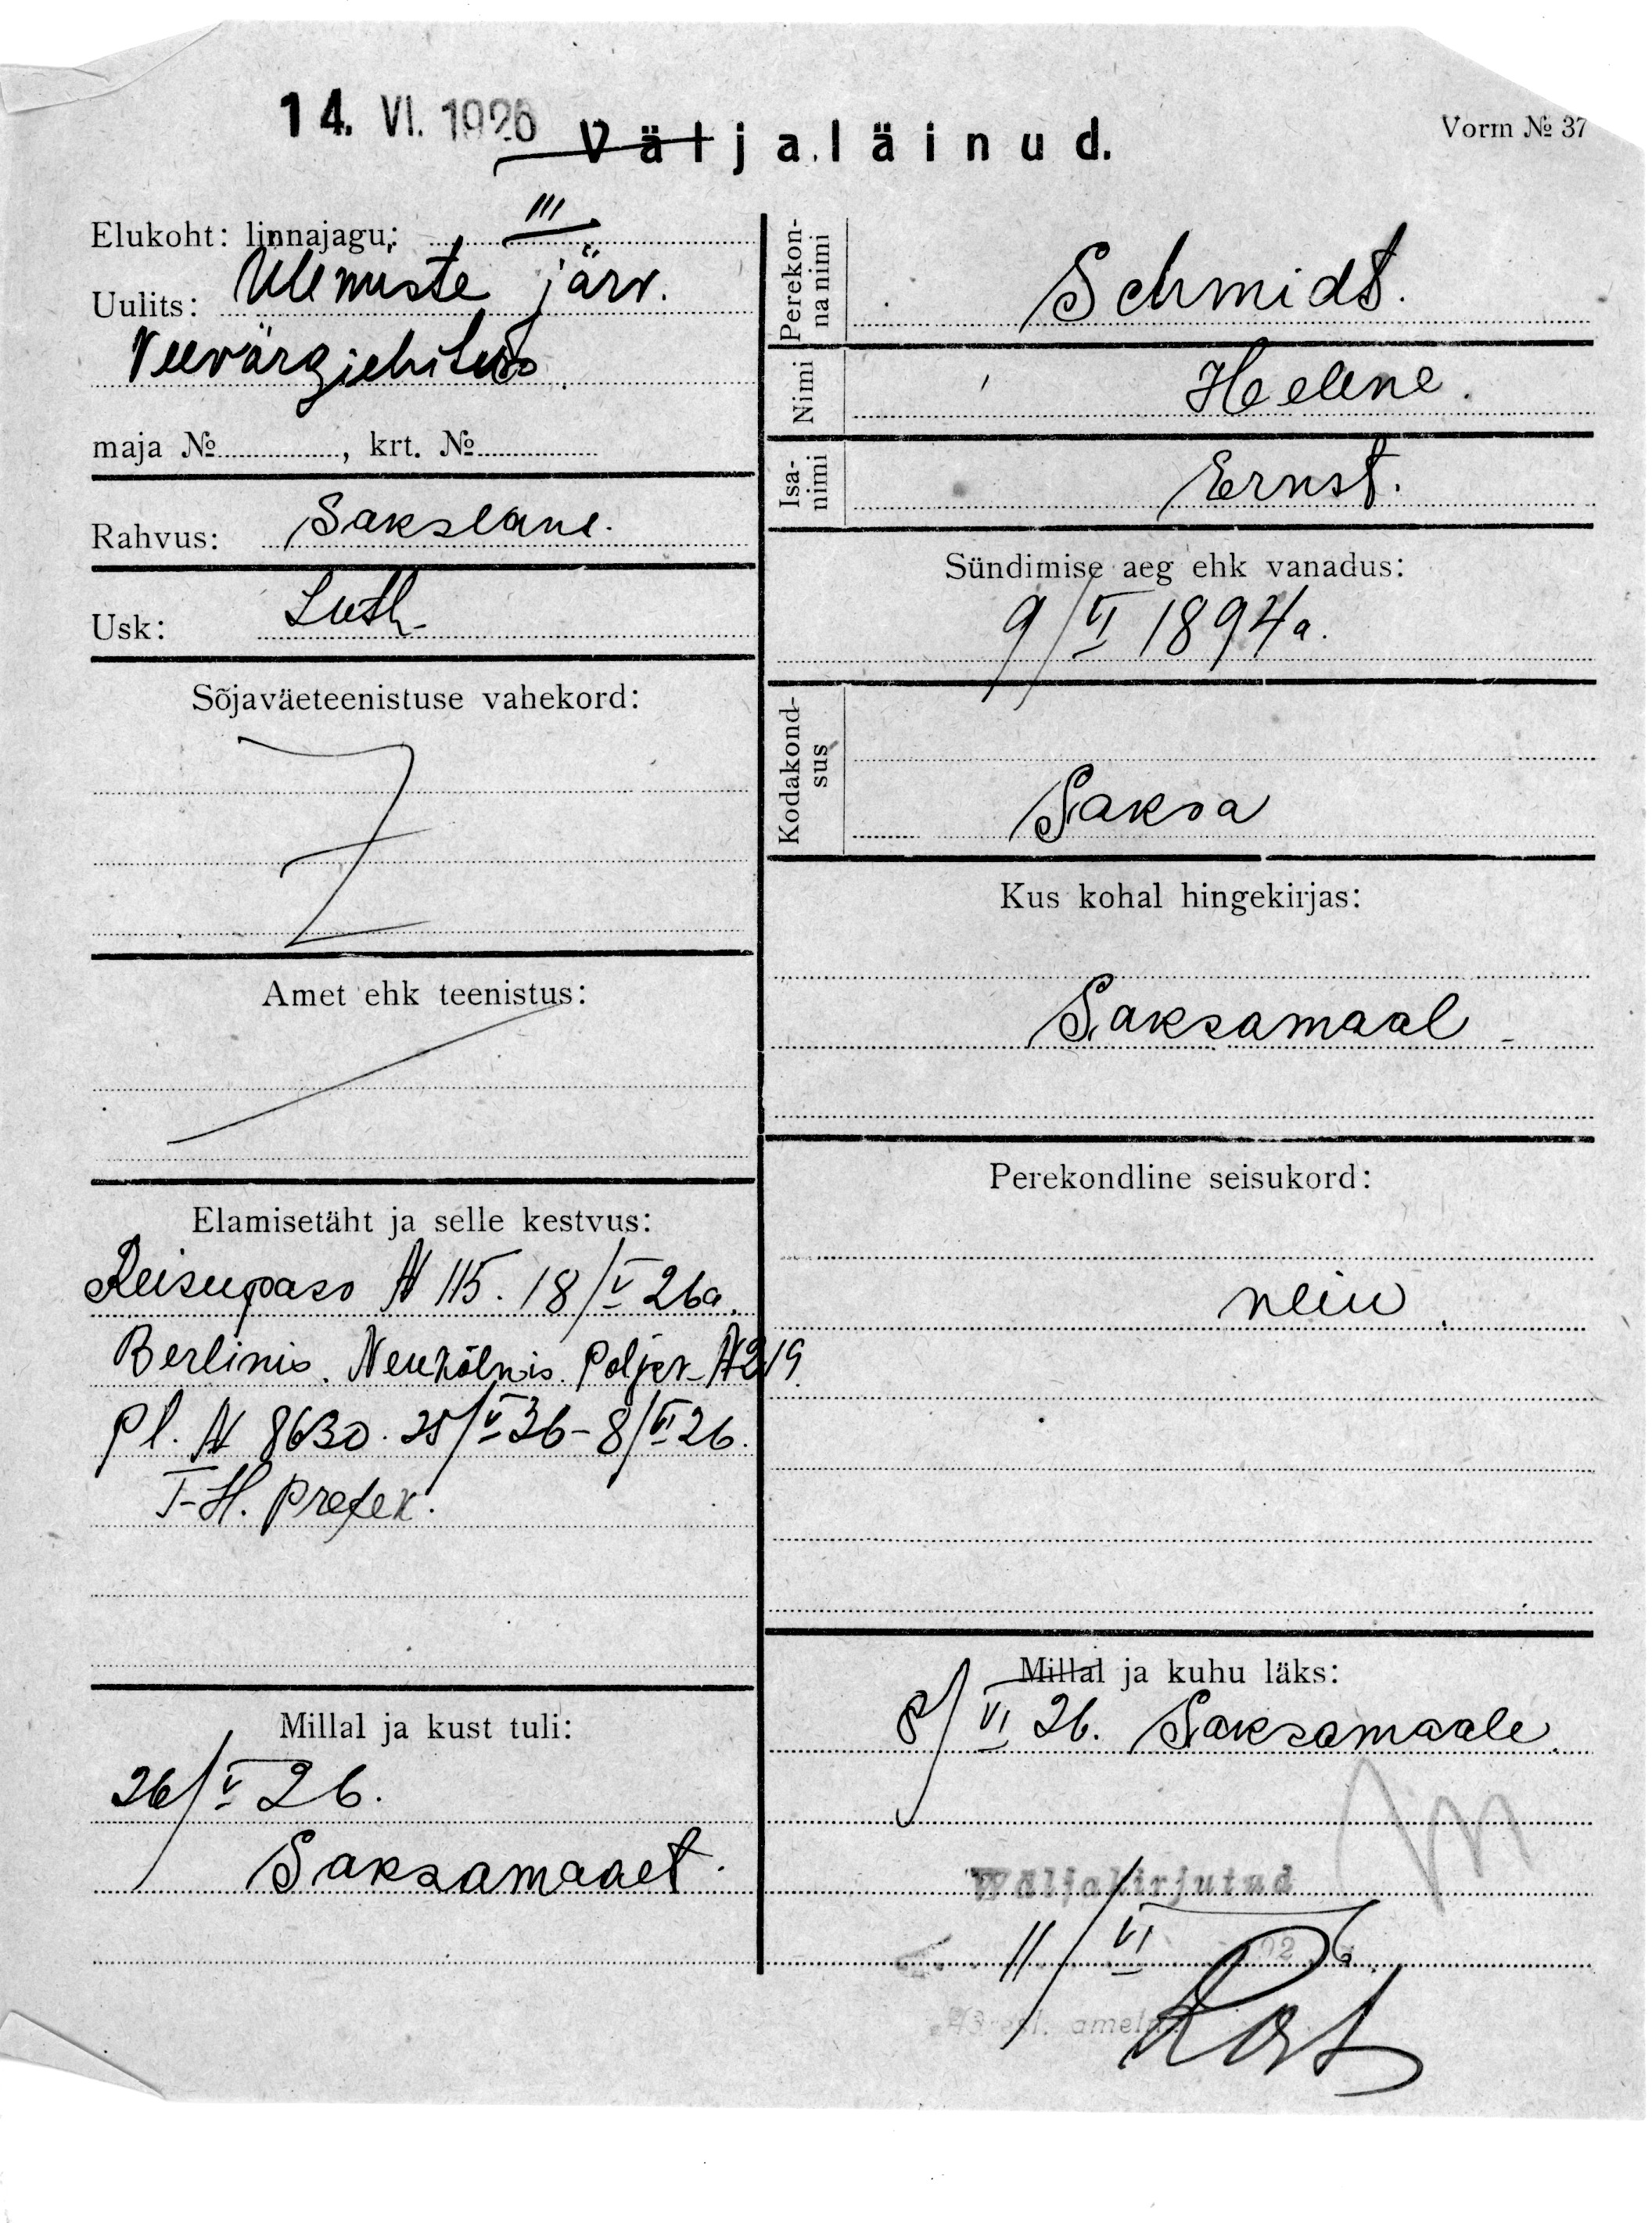 14. VI. 1926
Väljaläinud.
Vorm № 37
Elukoht: linnajagu: III
Uulits: Ülemiste järv.
Veevärgiehitus.
maja № , krt. №
Rahvus: Sakslane.
Usk: Luth.
Sõjaväeteenistuse vahekord:
Amet ehk teenistus:
Elamisetäht ja selle kestvus:
Reisupass N 115. 18/V 26a.
Berlinis. Neukölnis. Poljer. N 219.
pl. N 8630. 25/V 26 – 8/VI 26.
T-H. prefek.
Millal ja kust tuli:
26/V 26.
Saksamaaet.
Perekonna nimi
Schmidt.
Nimi
Helene.
Isanimi
Ernst.
Sündimise aeg ehk vanadus:
9/VI 1894a.
Kodakondsus
Saksa
Kus kohal hingekirjas:
Saksamaal
Perekondline seisukord:
neiu.
Millal ja kuhu läks:
8/VI 26. Saksamaale.
Wäljakirjutud
11/VI 1926.